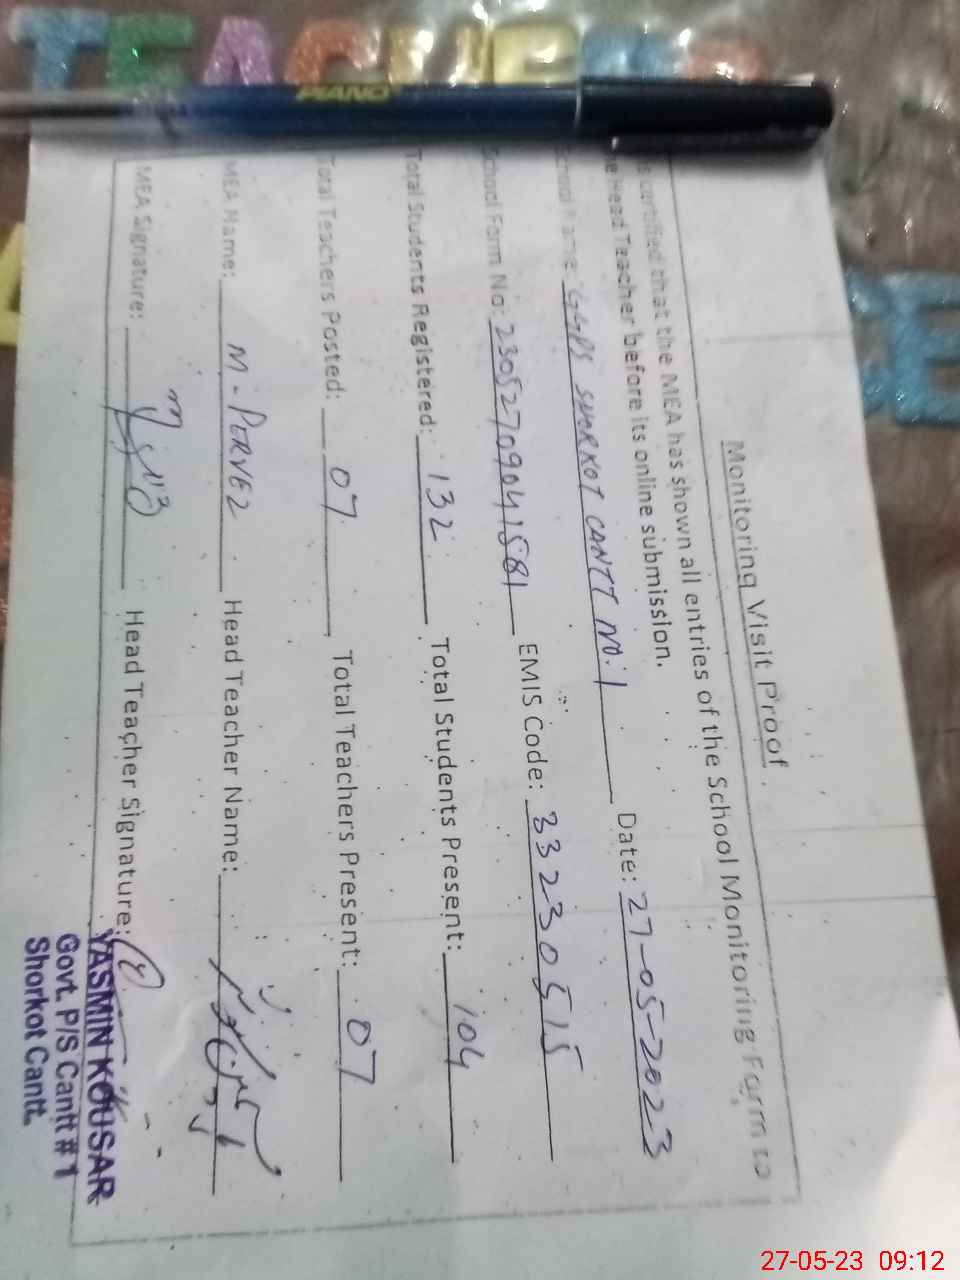 TEACHERS
PIANO
Monitoring Visit Proof
is certified that the MEA has shown all entries of the School Monitoring Form to
he Head Teacher before its online submission.
School Name: GGPS SHORKOT CANTT NO:1 Date: 27-05-2023
School Form No: 23052709041581 EMIS Code: 33230515
Total Students Registered: 132 Total Students Present: 104
Total Teachers Posted: 07 Total Teachers Present: 07
MEA Name: M-PERVEZ Head Teacher Name:
MEA Signature: Head Teacher Signature:
YASMIN KOUSAR
Govt. P/S Cantt # 1
Shorkot Cantt.
27-05-23 09:12